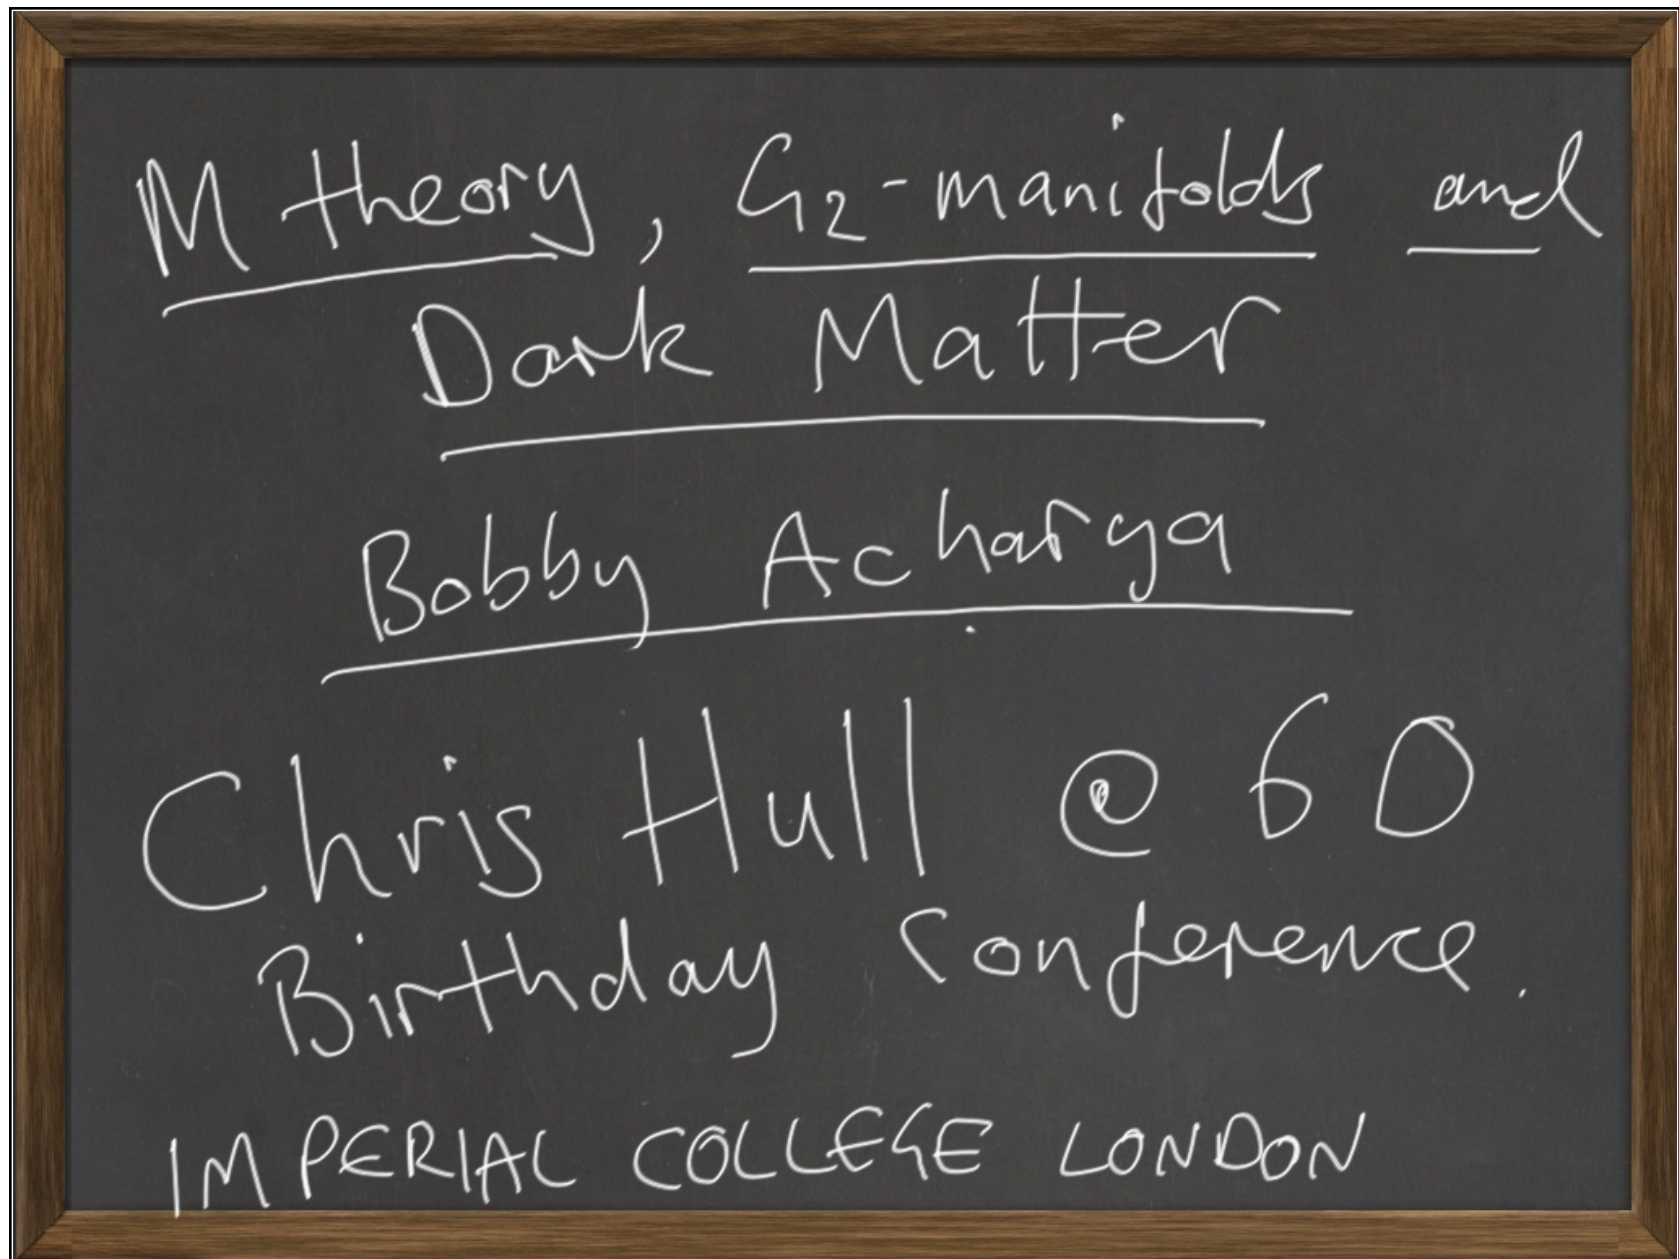 M theory, G2-manifolds and
Dark Matter
Bobby Acharya
Chris Hull @ 60
Birthday Conference.
IMPERIAL COLLEGE LONDON